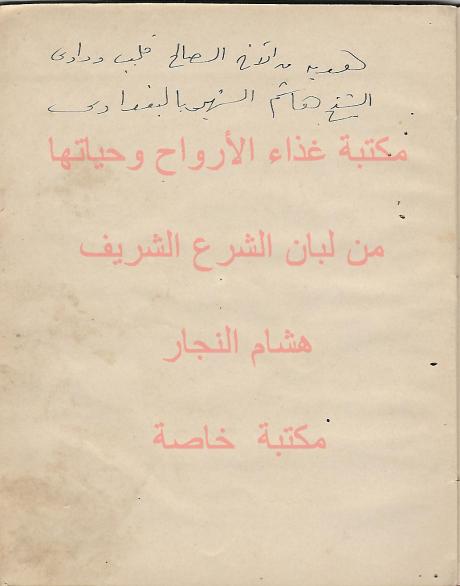 هدية من الأخ الصالح قلب ودادى
الشيخ هاشم الشهير بالبغدادى
مكتبة غذاء الأرواح وحياتها
من لبان الشرع الشريف
هشام النجار
مكتبة خاصة